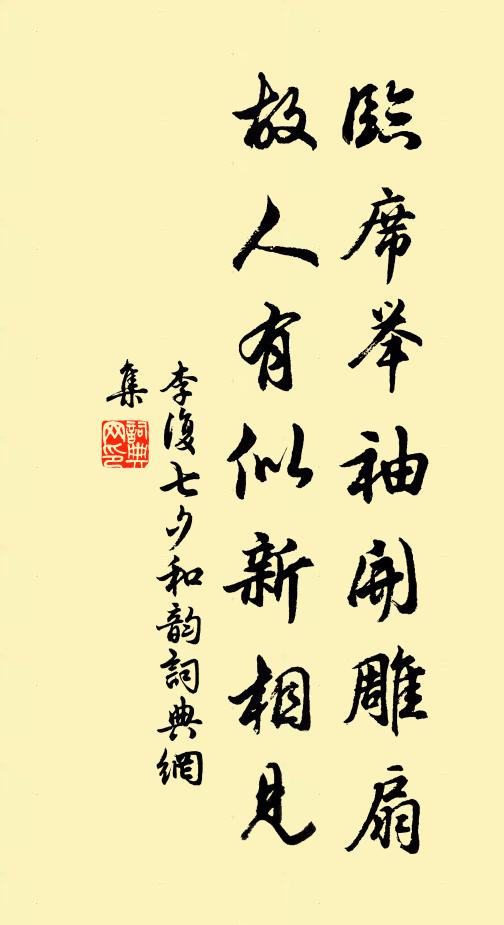 臨席举袖開雕扇
故人有似新相見
李復七夕和韵詞典網
集
詞典
网印